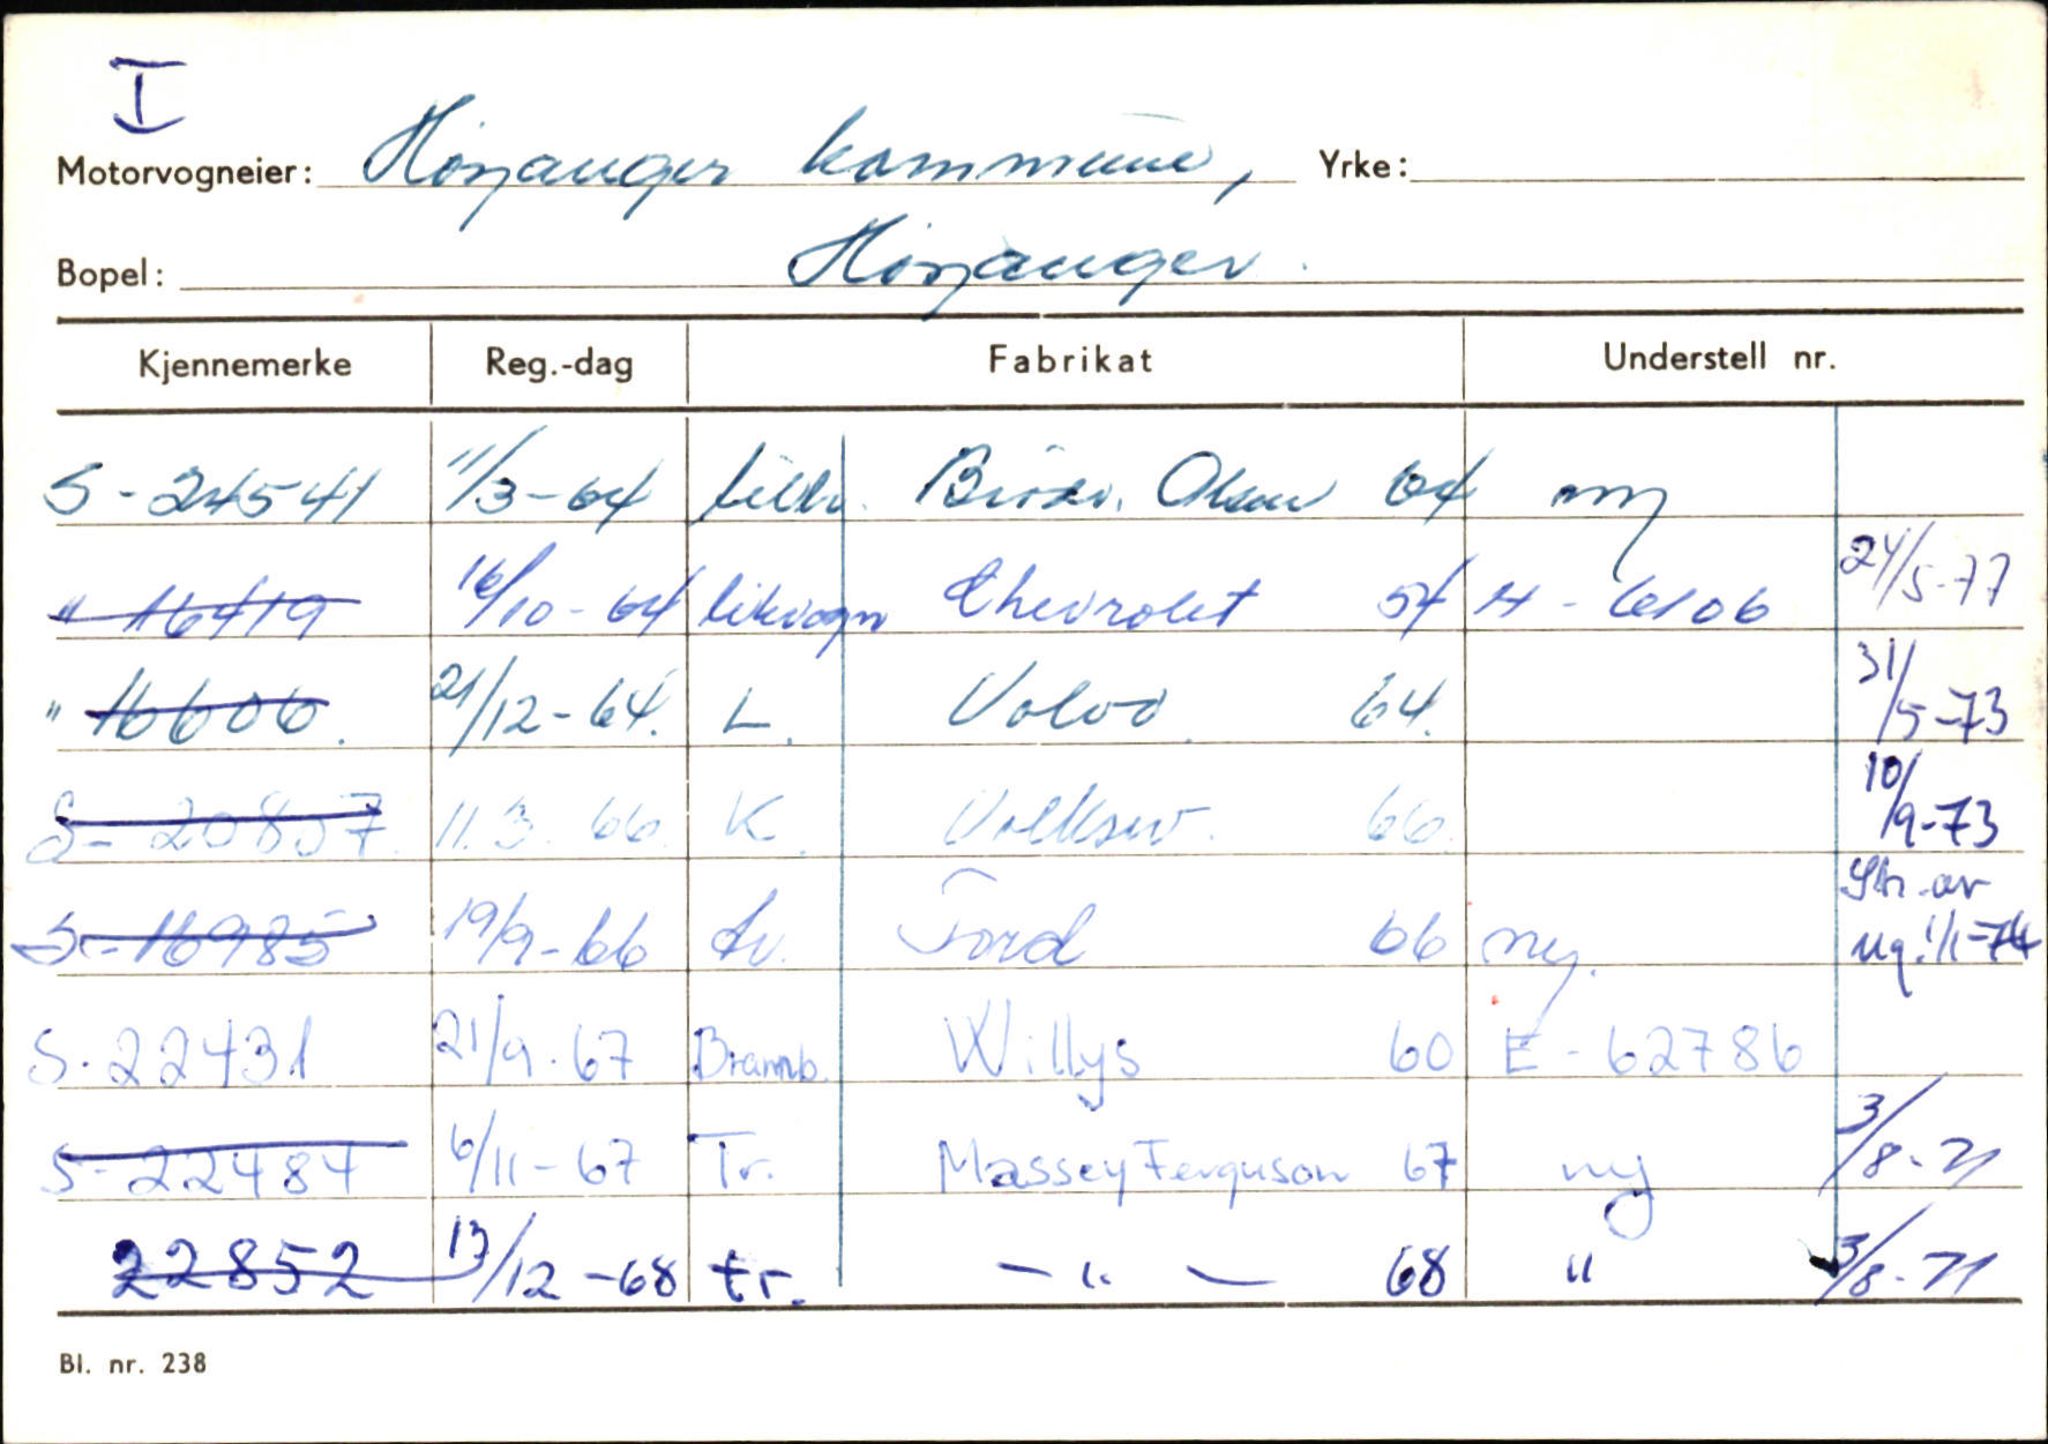 I
Motorvogneier: Höyanger kommune, Yrke:
Bopel: Höyanger.
Kjennemerke Reg.-dag Fabrikat Understell nr.
S-24541 11/3-64 tilh. Olsen 64 ny
" 16419 16/10-64 likvogn Chevrolet 54 H-6106 24/5-77
" 16606. 21/12-64. L. Volvo 64. 31/5-73
S-20857. 11.3.66. K. Volksw. 66. 10/9-73
S-16985 19/9-66 Lv. Ford 66 ny. Str. av
ng. 1/1-74
S.22431 21/9.67 Brannb. Willys 60 E-62786
S-22487 6/11-67 Tr. Massey Ferguson 67 ny 3/8-71
22852 13/12-68 tr. - " - 68 " 3/8-71
Bl. nr. 238